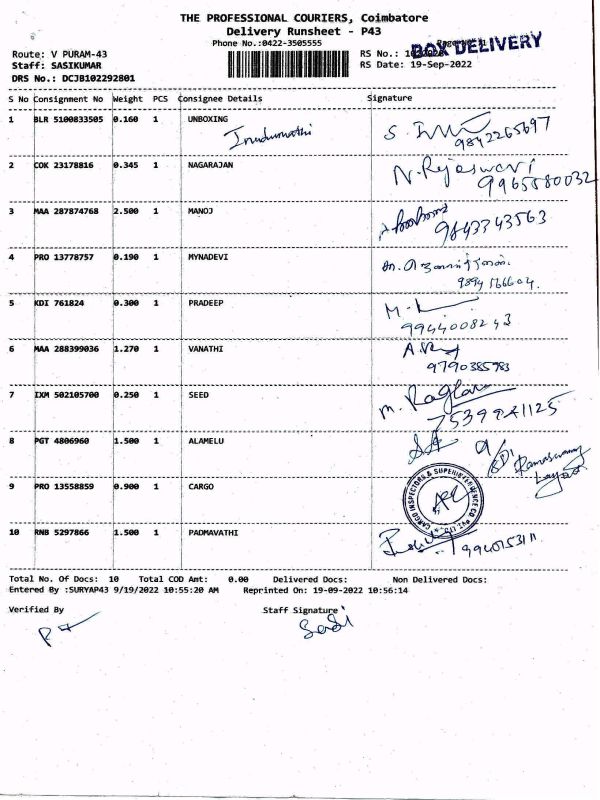 THE PROFESSIONAL COURIERS, Coimbatore
Delivery Runsheet - P43
Phone No.:0422-3505555
BOX DELIVERY
Route: V PURAM-43
RS No.:
Staff: SASIKUMAR
RS Date: 19-Sep-2022
DRS No.: DCJB102292801
S No Consignment No Weight PCS Consignee Details Signature
1 BLR 5100833505 0.160 1 UNBOXING
9842265697
2 COK 23178816 0.345 1 NAGARAJAN N. Rajeswari
9965580032
3 MAA 287874768 2.500 1 MANOJ
9843343563
4 PRO 13778757 0.190 1 MYNADEVI
5 KDI 761824 0.300 1 PRADEEP
9944008243
6 MAA 288399036 1.270 1 VANATHI
9790385983
7 IXM 502105700 0.250 1 SEED
8 PGT 4806960 1.500 1 ALAMELU
Ramaswamy
Layout
9 PRO 13558859 0.900 1 CARGO CARGO INSPECTORS & SUPERINTENDENCE CO. PVT. LTD.
10 RNB 5297866 1.500 1 PADMAVATHI
Total No. Of Docs: 10 Total COD Amt: 0.00 Delivered Docs: Non Delivered Docs:
Entered By :SURYAP43 9/19/2022 10:55:20 AM Reprinted On: 19-09-2022 10:56:14
Verified By Staff Signature
Sasi